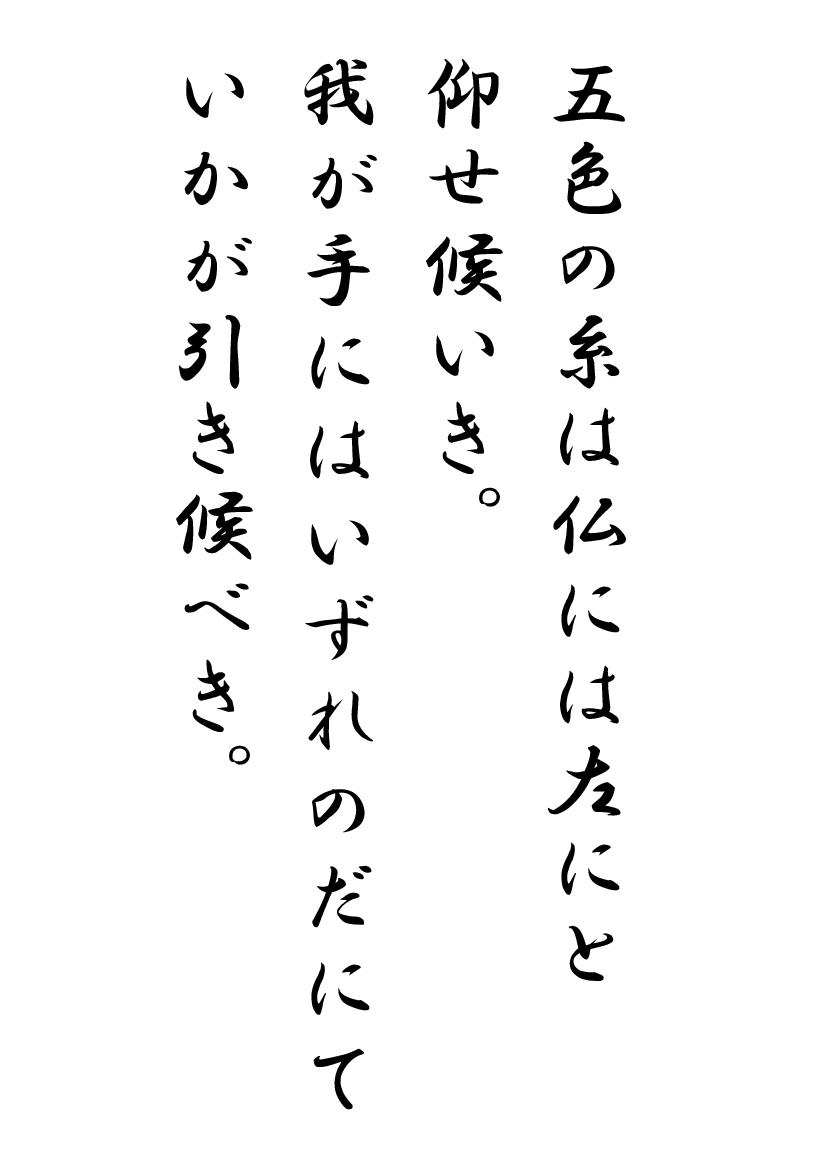 五色の糸は仏には左にと
仰せ候いき。
我が手にはいずれのだにて
いかが引き候べき。